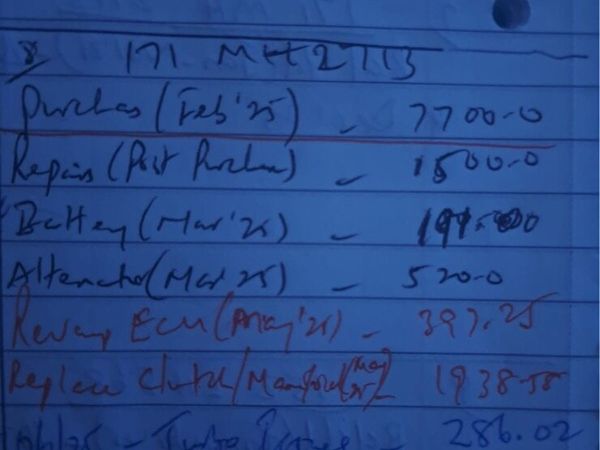 8/ 171 MH2713
Purchas (Feb'25) - 7700-0
Repairs (Post Purchase) - 1500-0
Battery (Mar'25) - 199.00
Alternator (Mar'25) - 520-0
Revamp ECU (May'25) - 397.25
Replace Clutch/Manifold (May 25) - 1938-58
- Turbo - 286.02